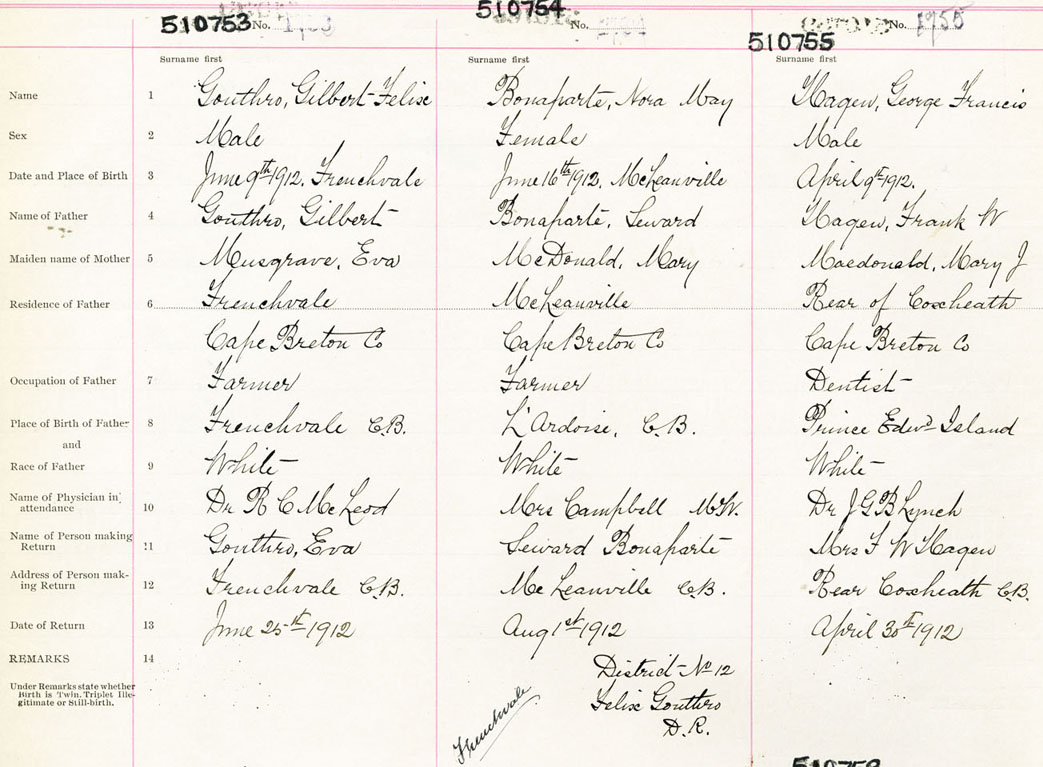 510753 No. 1953
510754 No.
510755 No. 1955
Surname first Surname first Surname first
Name 1 Gouthro, Gilbert Felix Bonaparte, Nora May Hagen, George Francis
Sex 2 Male Female Male
Date and Place of Birth 3 June 9th 1912. Frenchvale June 16th 1912. McLeanville April 9th 1912.
Name of Father 4 Gouthro, Gilbert Bonaparte, Seward Hagen, Frank W
Maiden name of Mother 5 Musgrave, Eva McDonald, Mary Macdonald, Mary J
Residence of Father 6 Frenchvale McLeanville Rear of Coxheath
Cape Breton Co Cape Breton Co Cape Breton Co
Occupation of Father 7 Farmer Farmer Dentist
Place of Birth of Father 8 Frenchvale C.B. L'Ardoise, C.B. Prince Edwd Island
and
Race of Father 9 White White White
Name of Physician in attendance 10 Dr R C McLeod Mrs Campbell M.W. Dr J G B Lynch
Name of Person making Return 11 Gouthro, Eva Seward Bonaparte Mrs F W Hagen
Address of Person mak-ing Return 12 Frenchvale C.B. McLeanville C.B. Rear Coxheath C.B.
Date of Return 13 June 25th 1912 Aug 1st 1912 April 30th 1912
REMARKS 14 District No 12
Under Remarks state whether
Birth is Twin, Triplet Ille-
gitimate or Still-birth.
Felix Gouthro
D.R.
Frenchvale